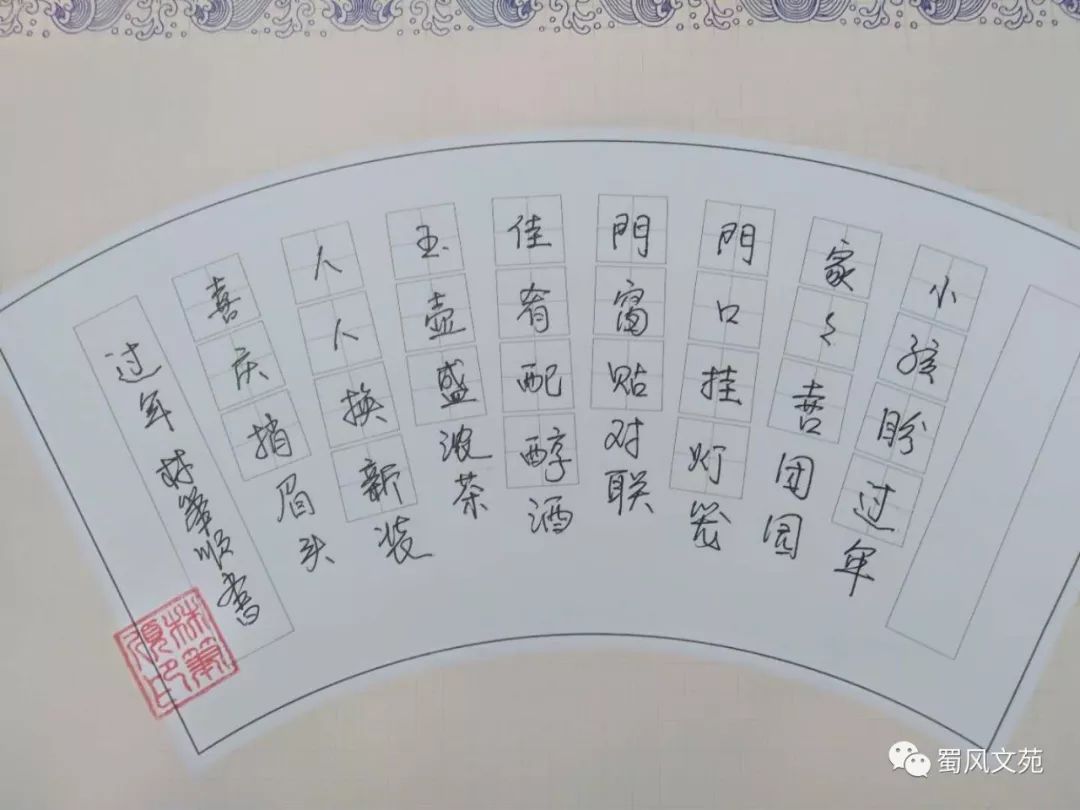 小孩盼过年
家々喜团园
門口挂灯笼
門窗贴对联
佳肴配醇酒
玉壶盛浓茶
人人换新装
喜庆捎眉头
过年 林筆顺书
林筆順印
蜀风文苑